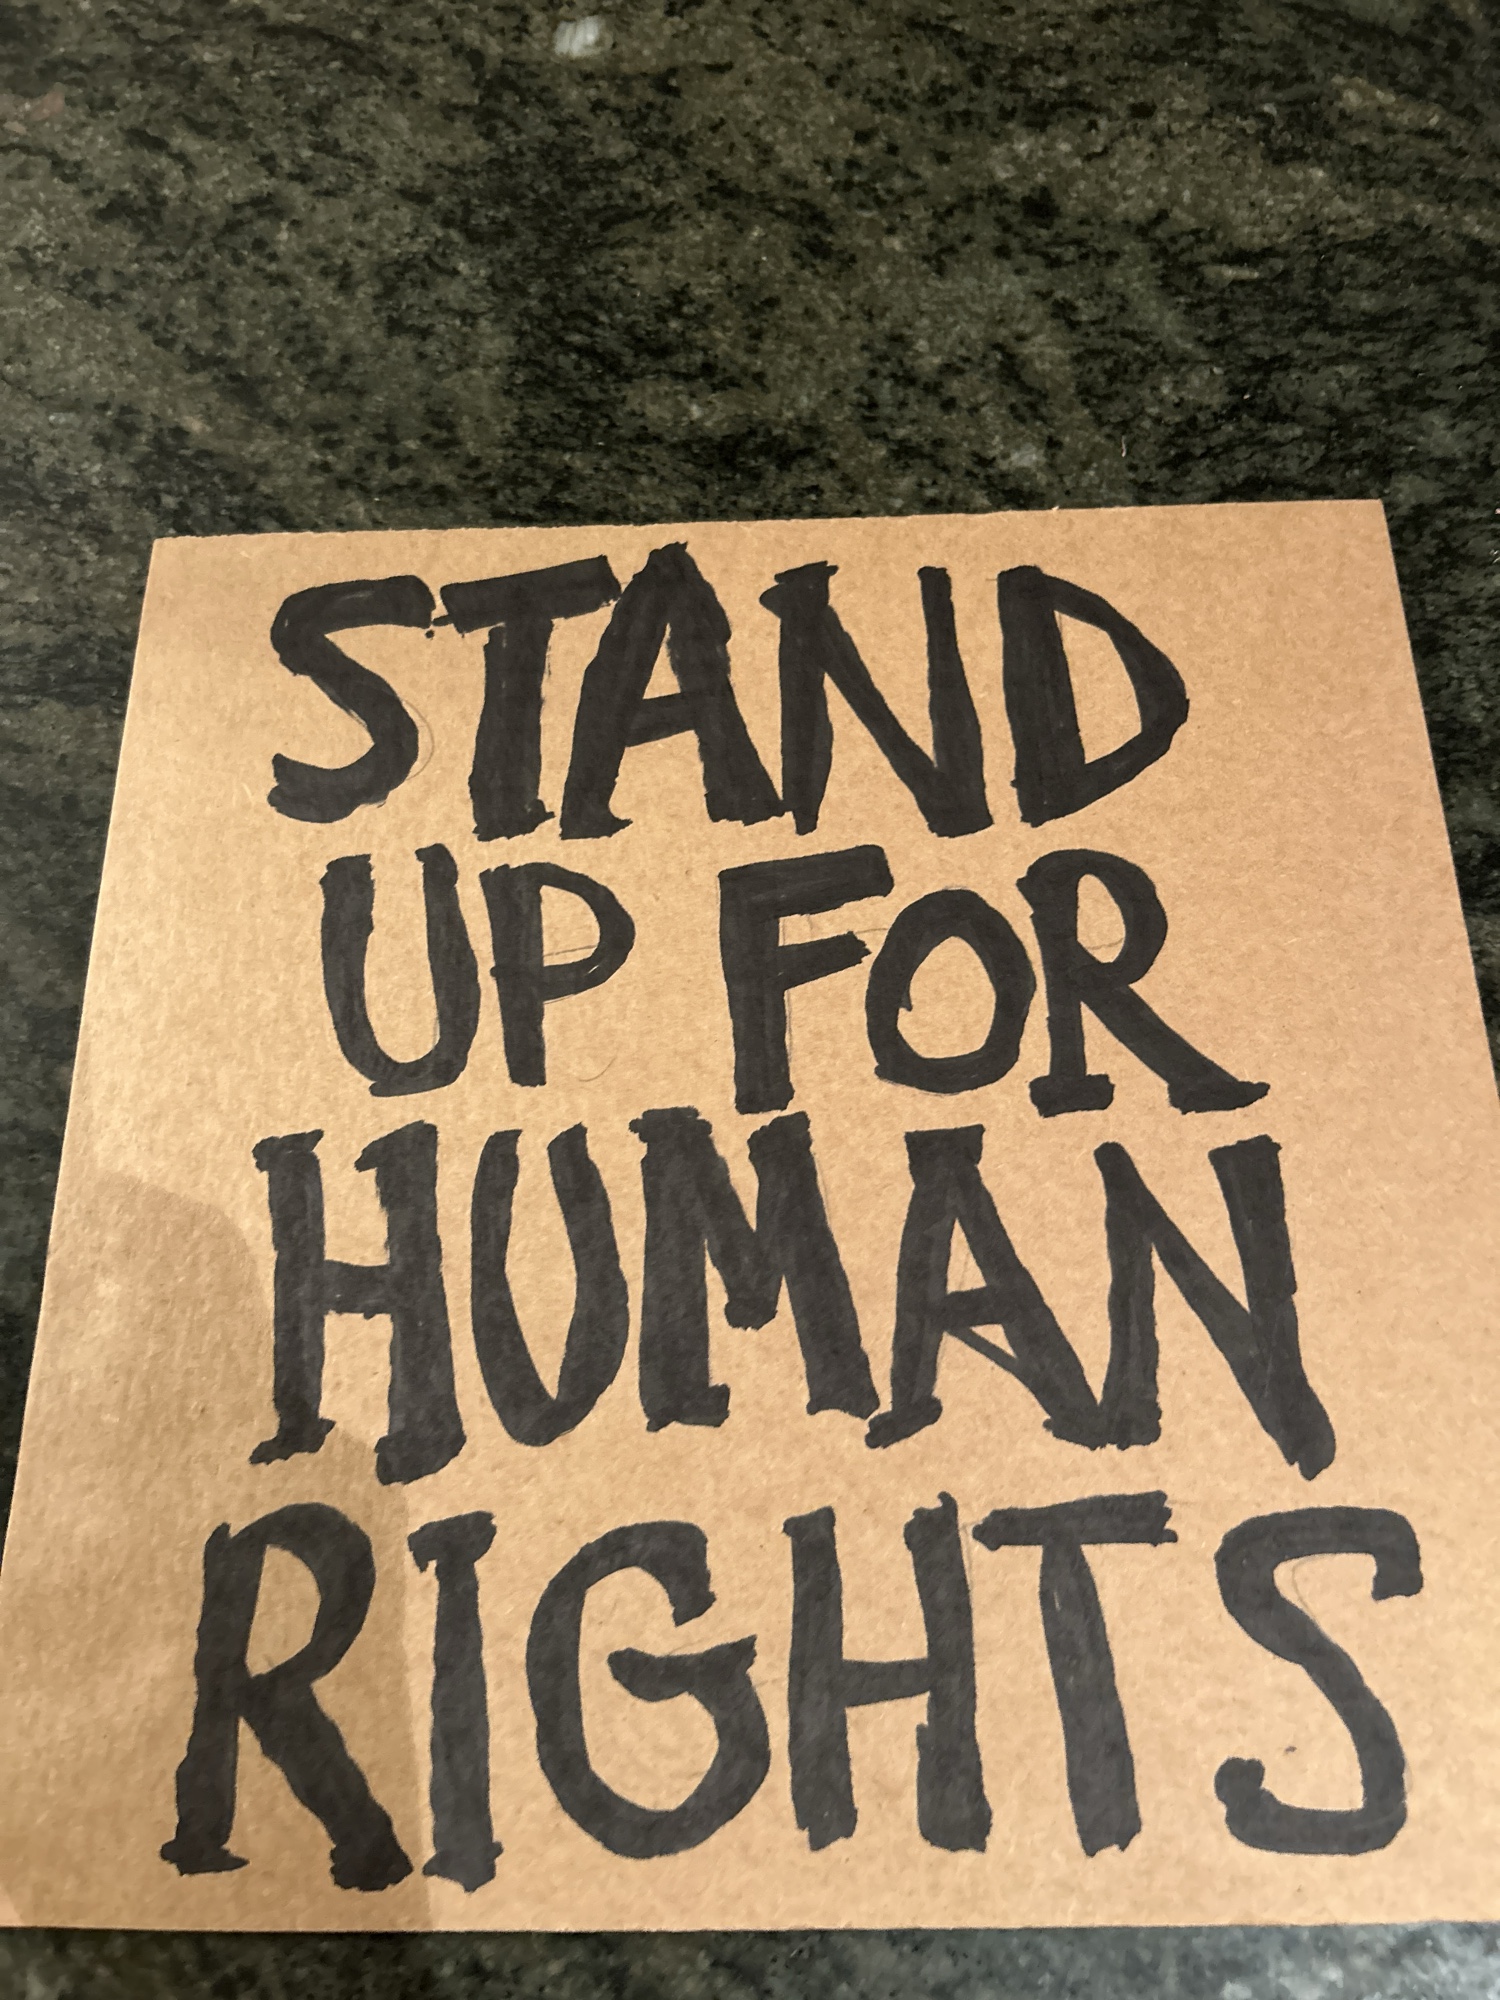 STAND
UP FOR
HUMAN
RIGHTS